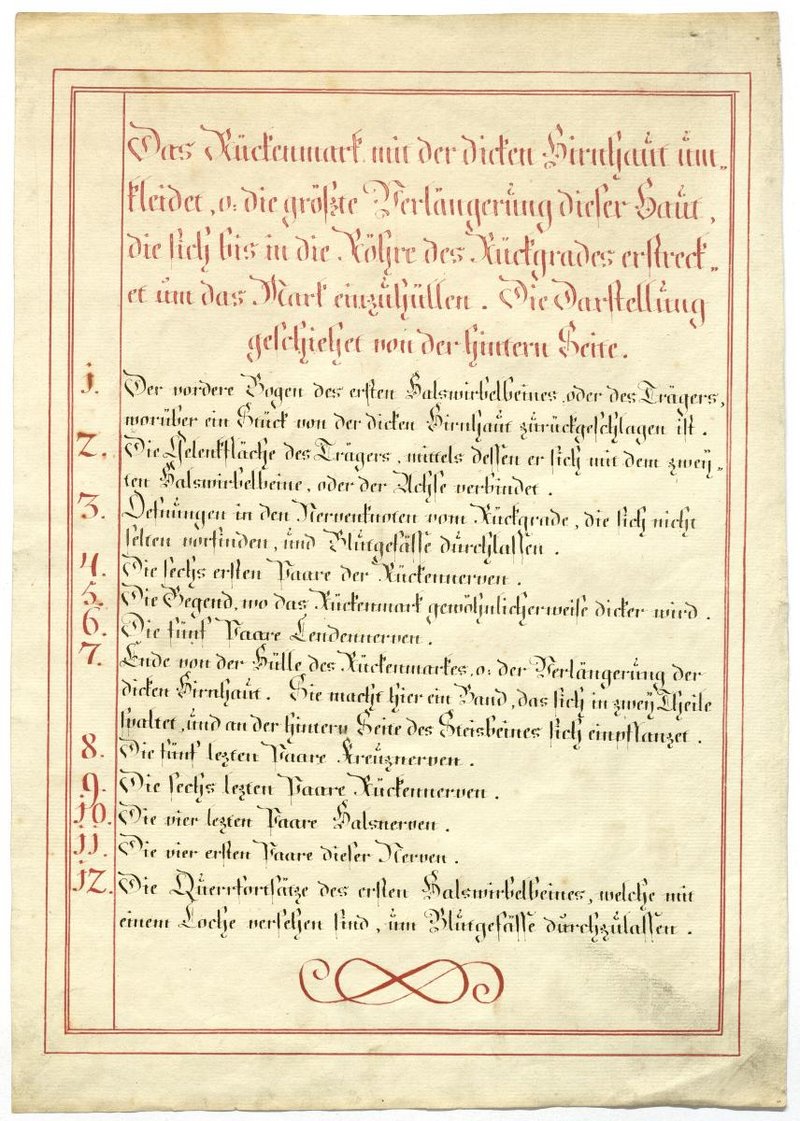 Das Rückenmark mit der dicken Hirnhaut um„
kleidet, o: die größte Verlängerung dieser Haut,
die sich bis in die Röhre des Rückgrades erstreck„
et um das Mark einzuhüllen. Die Darstellung
geschiehet von der hintern Seite.
1. Der vordere Bogen des ersten Halswirbelbeines, oder des Trägers,
worüber ein Stück von der dicken Hirnhaut zurückgeschlagen ist.
2. Die Gelenkfläche des Trägers, mittels dessen er sich mit dem zwey„
ten Halswirbelbeine, oder der Achse verbindet.
3. Oefnungen in den Nervenknoten vom Rückgrade, die sich nicht
selten vorfinden, und Blutgefässe durchlassen.
4. Die sechs ersten Paare der Rückennerven.
5. Die Gegend, wo das Rückenmark gewöhnlicherweise dicker wird.
6. Die fünf Paare Lendennerven.
7. Ende von der Hülle des Rückenmarkes, o: der Verlängerung der
dicken Hirnhaut. Sie macht hier ein Band, das sich in zwey Theile
spaltet, und an der hintern Seite des Steisbeines sich einpflanzet.
8. Die fünf lezten Paare Kreuznerven.
9. Die sechs lezten Paare Rückennerven.
10. Die vier lezten Paare Halsnerven.
11. Die vier ersten Paare dieser Nerven.
12. Die Querrfortsätze des ersten Halswirbelbeines, welche mit
einem Loche versehen sind, um Blutgefässe durchzulassen.